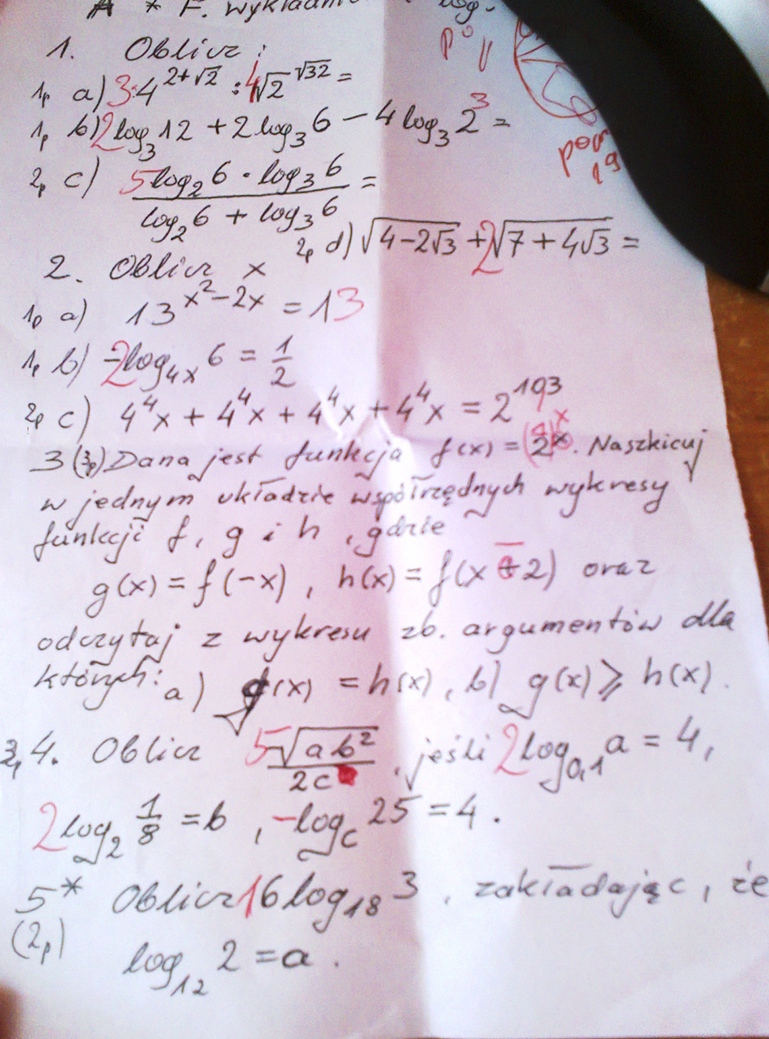 A * F. wykładni log.
1. Oblicz:
1p a) 3·4^{2+√2} : 4√2^{√32} =
1p b) 2log₃12 + 2log₃6 − 4log₃2³ =
2p c) \frac{5log₂6 · log₃6}{log₂6 + log₃6} =
2p d) √(4−2√3) + 2√(7+4√3) =
2. Oblicz x
1p a) 13^{x²−2x} = 13
1p b) −2log_{4x}6 = 1/2
2p c) 4^{4^4}x + 4^{4^4}x + 4^{4^4}x + 4^{4^4}x = 2^{193}
3 (3p) Dana jest funkcja f(x) = . Naszkicuj
w jednym układzie współrzędnych wykresy
funkcji f, g i h, gdzie
g(x) = f(−x), h(x) = f(x − 2) oraz
odczytaj z wykresu zb. argumentów dla
których: a) g(x) = h(x), b) g(x) ≥ h(x).
3p 4. Oblicz \frac{5√(ab²)}{2c}, jeśli 2log_{0,1}a = 4,
2log₂ 1/8 = b, −log_c 25 = 4.
5* Oblicz 16log₁₈3, zakładając, że
(2p) log₁₂2 = a.